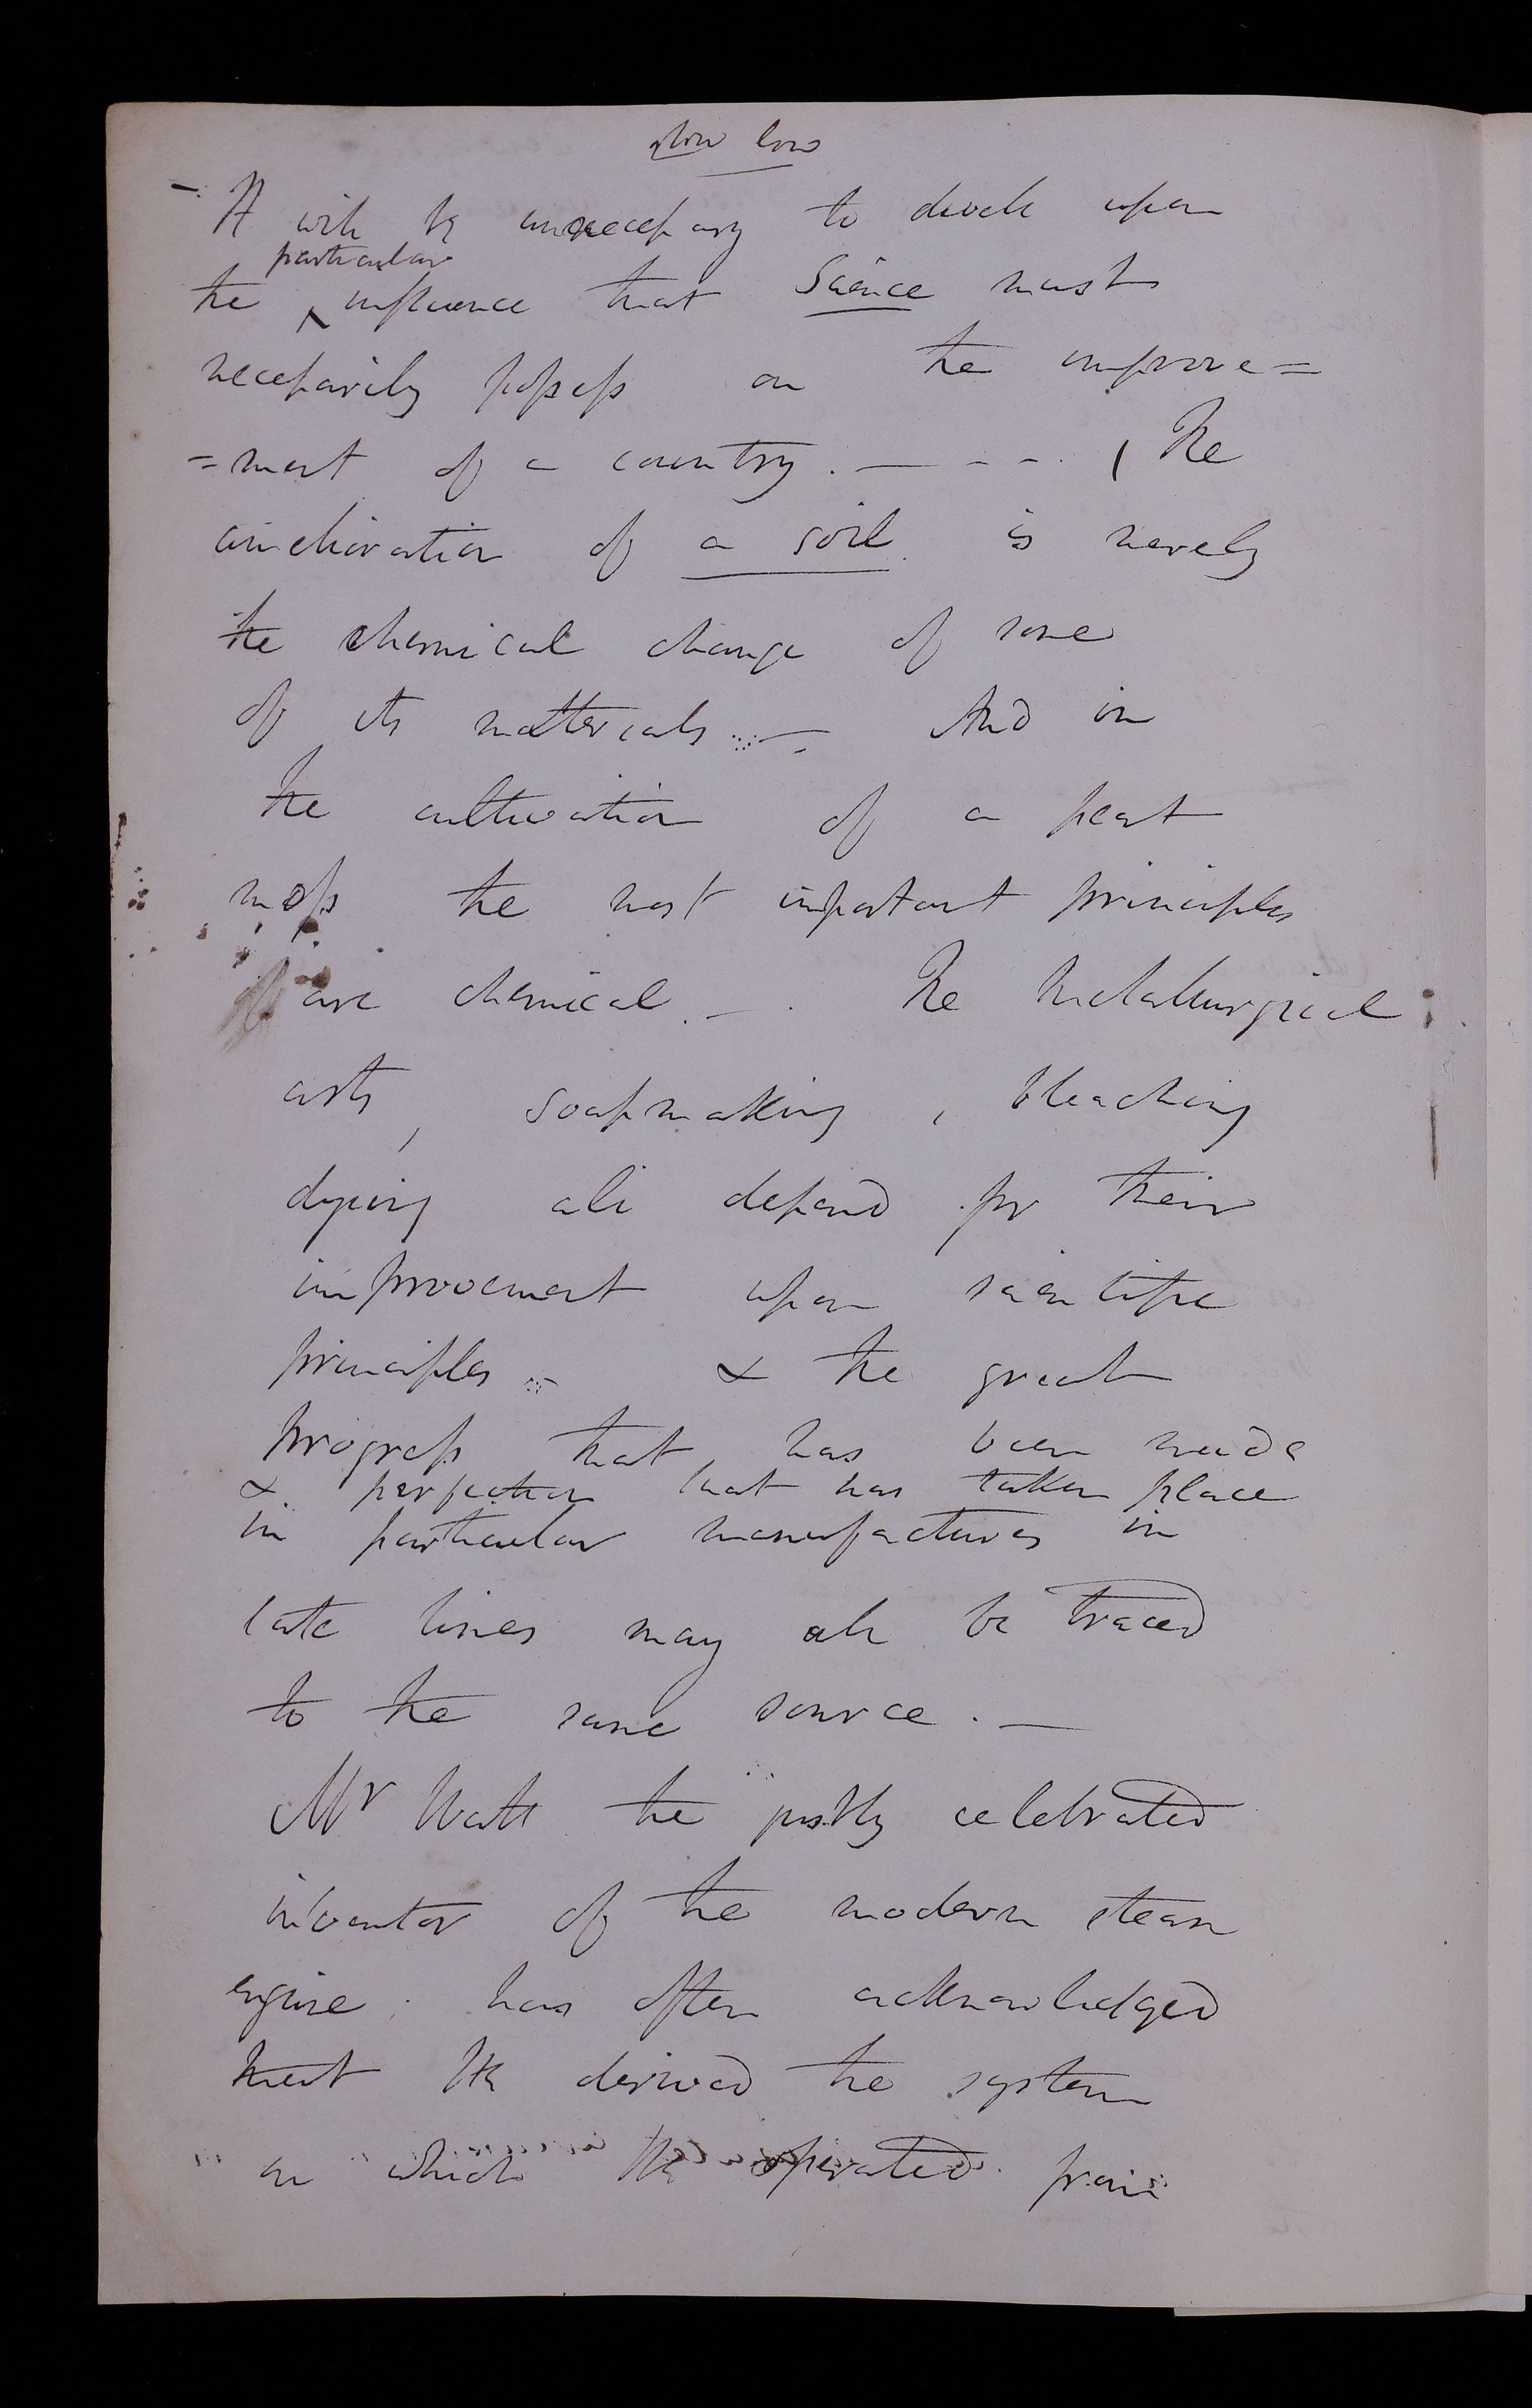 slow low
- It will be unnecessary to dwell upon
particular
the ^ influence that Science must
necessarily possess on the improve=
=ment of a country. — - - . ( The
amelioration of a soil is merely
the chemical change of some
of its matterials . — And in
the cultivation of a peat
moss the most important principles
are chemical . — . The Metallurgical
arts, soapmaking , bleaching
dying all depend for their
improovement upon scientific
principles . - & the great
progress that has been made
& perfection that has taken place
in particular manufactures in
late times may all be traced
to the same source . —
Mr Watt the justly celebrated
inventor of the modern steam
engine . has often acknowledged
that He derived the system
on which He operated from